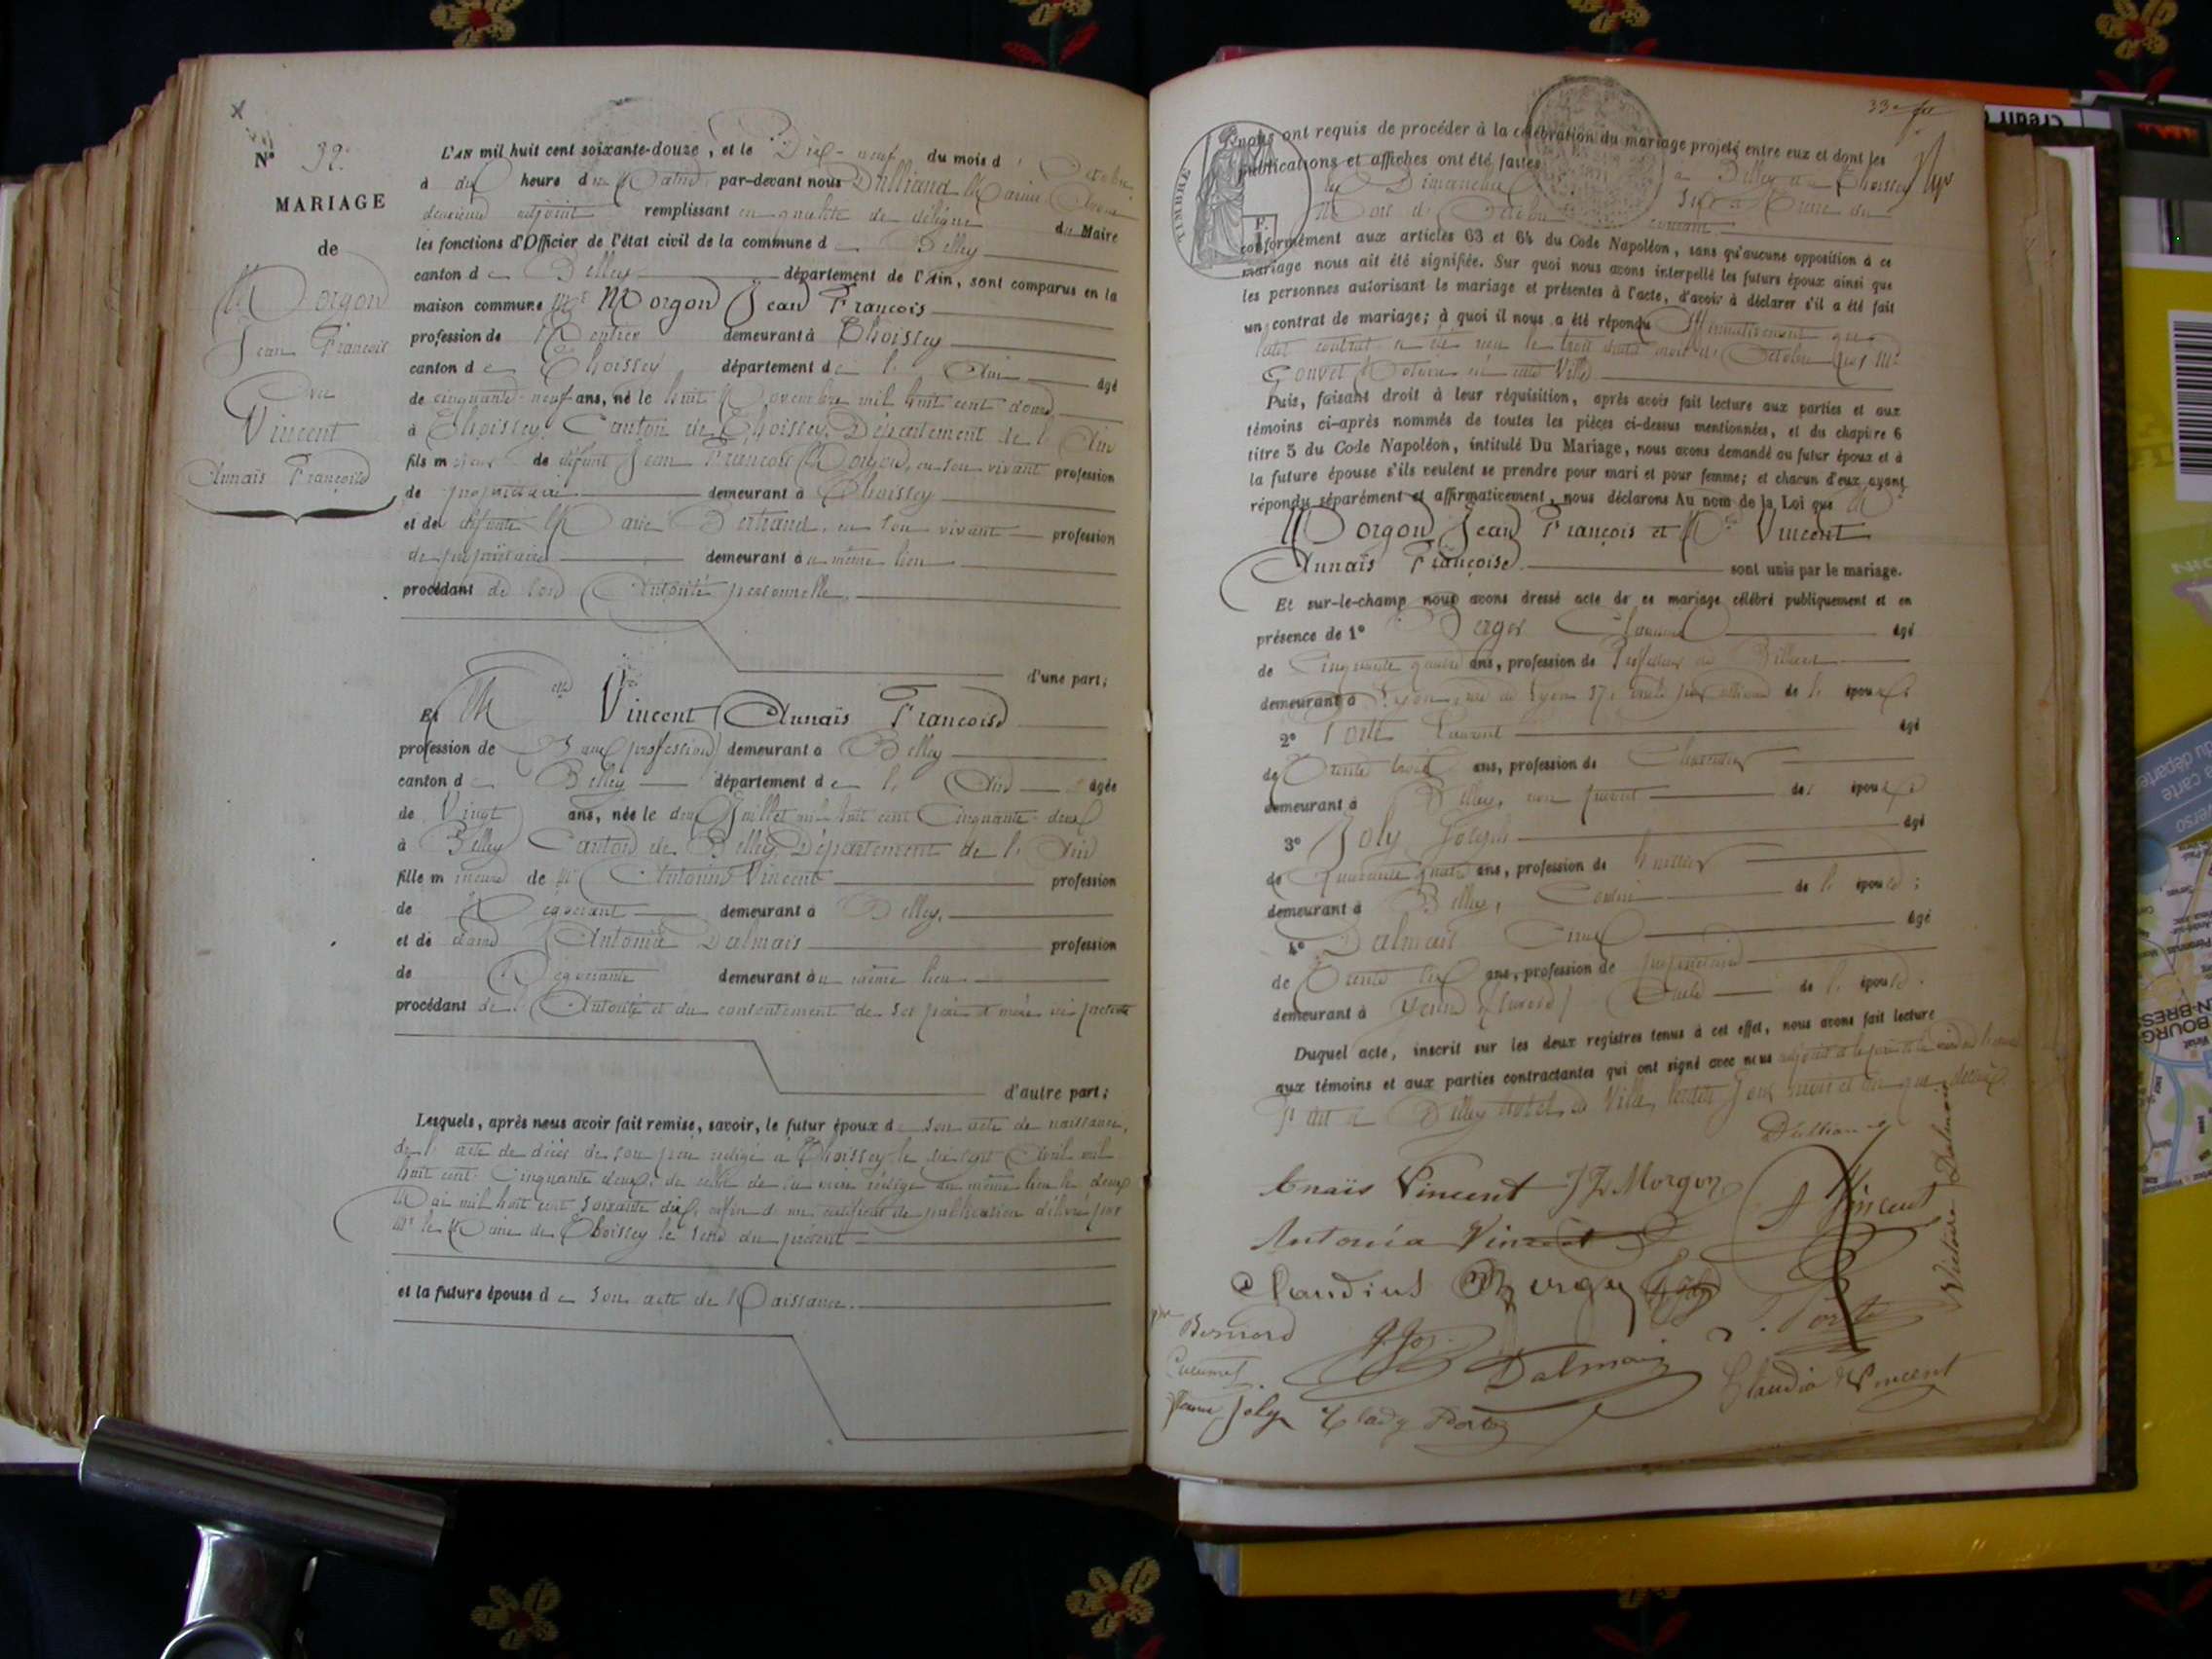 N° 32.
MARIAGE
de
Morgon
Jean François
Avec
Vincent
Annaïs Françoise
L'AN mil huit cent soixante-douze, et le Dix-neuf du mois d'Octobre
à dix heure du Matin par-devant nous Dulliand Marie
deuxième adjoint remplissant en qualité de délégué du Maire
les fonctions d'Officier de l'état civil de la commune de Belley
canton de Belley département de l'Ain, sont comparus en la
maison commune Mr Morgon Jean François
profession de Rentier demeurant à Thoissey
canton de Thoissey département de l'Ain âgé
de cinquante-neuf ans, né le huit Novembre mil huit cent douze,
à Thoissey, Canton de Thoissey, Département de l'Ain
fils majeur de défunt Jean François Morgon, en son vivant profession
de propriétaire demeurant à Thoissey
et de défunte Marie Bertrand, en son vivant profession
de propriétaire demeurant au même lieu
procédant de son Autorité personnelle.
d'une part;
Et Melle Vincent Annaïs Françoise
profession de Sans profession demeurant à Belley
canton de Belley département de l'Ain âgée
de Vingt ans, née le deux Juillet mil huit cent Cinquante-deux
à Belley Canton de Belley, Département de l'Ain
fille mineure de Mr Antoine Vincent profession
de Négociant demeurant à Belley,
et de dame Antonia Dalmais profession
de Négociante demeurant au même lieu
procédant de l'Autorité et du consentement de ses père et mère ici présents
d'autre part;
Lesquels, après nous avoir fait remise, savoir, le futur époux de son acte de naissance,
de l'acte de décès de son père rédigé à Thoissey le Avril mil
huit cent Cinquante deux, de celui de sa mère rédigé au même lieu le deux
Mai mil huit cent soixante dix, enfin d'un certificat de publication délivré par
Mr le Maire de Thoissey le du présent
et la future épouse de son acte de Naissance.
33e
TIMBRE
nous ont requis de procéder à la célébration du mariage projeté entre eux et dont les
publications et affiches ont été faites à Belley et à Thoissey
les Dimanches Six et Treize du
Mois d'Octobre courant
conformément aux articles 63 et 64 du Code Napoléon, sans qu'aucune opposition à ce
mariage nous ait été signifiée. Sur quoi nous avons interpellé les futurs époux ainsi que
les personnes autorisant le mariage et présentes à l'acte, d'avoir à déclarer s'il a été fait
un contrat de mariage; à quoi il nous a été répondu Affirmativement que
ledit contrat a été reçu le trois mois d'Octobre par Me
Gouvet Notaire en cette Ville
Puis, faisant droit à leur réquisition, après avoir fait lecture aux parties et aux
témoins ci-après nommés de toutes les pièces ci-dessus mentionnées, et du chapitre 6
titre 5 du Code Napoléon, intitulé Du Mariage, nous avons demandé au futur époux et à
la future épouse s'ils veulent se prendre pour mari et pour femme; et chacun d'eux ayant
répondu séparément et affirmativement, nous déclarons Au nom de la Loi que M
Morgon Jean François et Melle Vincent
Annaïs Françoise sont unis par le mariage.
Et sur-le-champ nous avons dressé acte de ce mariage célébré publiquement et en
présence de 1° Berger âgé
de Cinquante quatre ans, profession de Professeur de Billard
demeurant à Lyon, rue de Lyon 37, oncle par alliance de l'épouse
2° Porte Laurent âgé
de Trente trois ans, profession de
demeurant à Belley, non parent de l'épouse
3° Joly Joseph âgé
de Quarante quatre ans, profession de huissier
demeurant à Belley, Cousin de l'épouse;
4° Dalmais âgé
de Trente six ans, profession de propriétaire
demeurant à Yenne (Savoie) Oncle de l'épouse.
Duquel acte, inscrit sur les deux registres tenus à cet effet, nous avons fait lecture
aux témoins et aux parties contractantes qui ont signé avec nous
Fait à Belley hôtel de Ville, lesdits Jour, mois et an que dessus
Dulliand
Anaïs Vincent J F Morgon A Vincent
Antonia Vincent
Claudius Berger
Bernard J. Joly L. Porte
Dalmais Claudia Vincent
Joly Porte
Victoire Dalmais